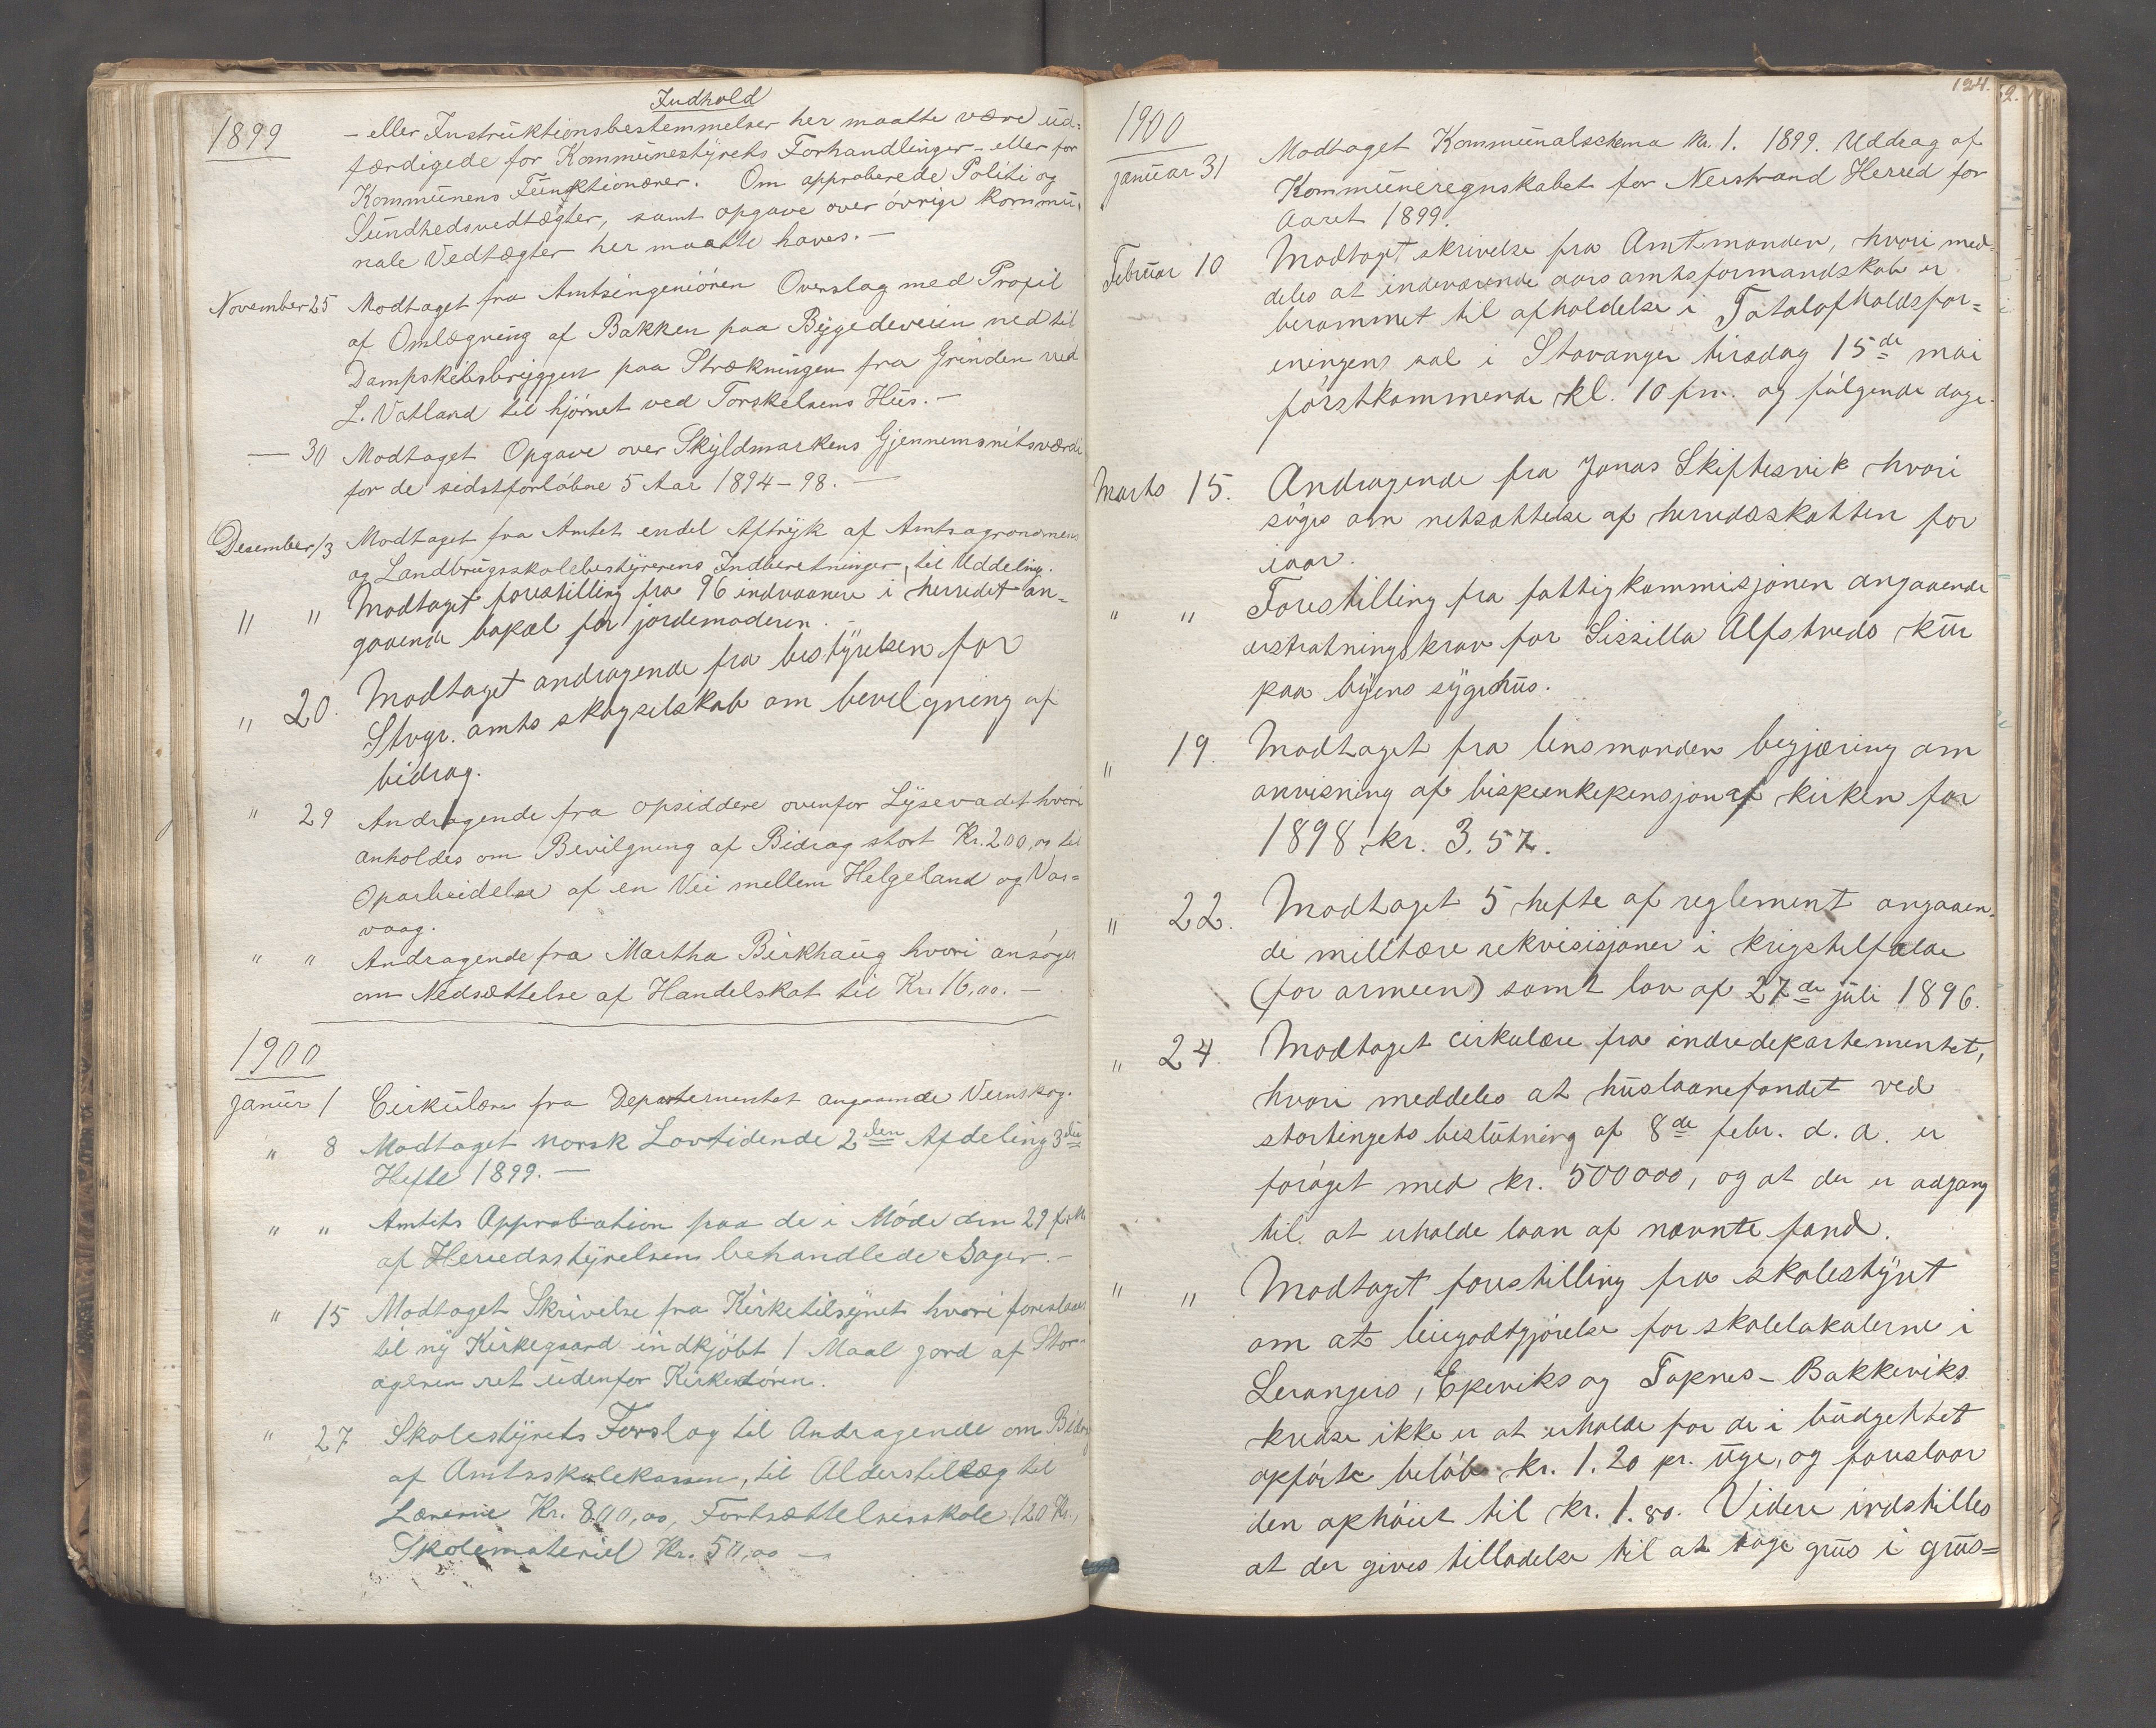 Indhold
1899
- eller Instruktionsbestemmelser her maatte være ud=
færdigede for Kommunestyrets Forhandlinger - eller for
Kommunens Funktionærer. Om approberede Politi og
Sundhedsvedtægter, samt opgave over övrige kommu-
nale Vedtægter her maatte haves. -
November 25 Modtaget fra Amtsingeniören Overslag med Profil
af Omlægning af Bakken paa Bygdeveien ned til
Dampskibsbryggen paa Strækningen fra Grinden ved
L. Vatland til hjörnet ved Torkelsens Hus. -
— 30 Modtaget Opgave over Skyldmarkens Gjennemsnitsværdi
for de sidstforløbne 5 Aar 1894-98. —
Desember 13 Modtaget fra Amtet endel Aftryk af Amtsagronomens
og Landbrugsskolebestyrerens Indberetninger, til Uddeling.
" " Modtaget forestilling fra 96 indvaanere i herredet an-
gaaende bopæl for jordemoderen.
" 20. Modtaget andragende fra bestyrelsen for
Stvgr. amts skogselskab om bevilgning af
bidrag.
" 29 Andragende fra opsiddere ovenfor Lysevadt hvori
anholdes om Bevilgning af Bidrag stort Kr. 200,00 til
Oparbeidelse af en Vei mellem Helgeland og Vas=
vaag.
" " Andragende fra Martha Birkhaug hvori ansøges
om Nedsættelse af Handelskat til Kr. 16,00. -
1900
Januar 1 Cirkulære fra Departementet angaaende Vernskog.
" 8 Modtaget norsk Lovtidende 2den Afdeling 3die
Hefte 1899. —
" " Amtets Approbation paa de i Möde den 29 f. M.
af Herredsstyrelsen behandlede Sager. -
" 15 Modtaget Skrivelse fra Kirketilsynet hvori foreslaaes
til ny Kirkegaard indkjöbt 1 Maal jord af Stor-
ageren ret udenfor Kirkedören.
" 27 Skolestyrets Forslag til Andragende om Bidrag
af Amtsskolekassen, til Alderstillæg til
Lærerne Kr. 800,00, Fortsættelsesskole 120 Kr.,
Skolemateriel Kr. 50,00 —
124.
1900
Januar 31 Modtaget Kommunalschema Nr. 1. 1899. Uddrag af
Kommuneregnskabet for Nerstrand Herred for
Aaret 1899.
Februar 10 Modtaget skrivelse fra Amtmanden, hvori med-
deles at indeværende aars amtsformandskab er
berammet til afholdelse i Totalafholdsfor=
eningens sal i Stavanger tirsdag 15de mai
förstkommende kl. 10 fm. og fölgende dage.
Marts 15. Andragende fra Jonas Skiftesvik hvori
söges om netsattelse af herredsskatten for
iaar.
" " Forestilling fra fattigkommisjonen angaaende
erstatningskrav for Sissilla Alfstveds kur
paa byens sygehus.
" 19. Modtaget fra lensmanden begjæring om
anvisning af bispeenkepensjon af kirken for
1898 kr. 3.57.
" 22. Modtaget 5 hefte af reglement angaaen-
de militære rekvisisjoner i krigstilfælde
(for armeen) samt lov af 27de juli 1896.
" 24. Modtaget cirkulære fra indredepartementet,
hvori meddeles at huslaanefondet ved
stortingets beslutning af 8de febr. d. a. er
foröget med kr. 500000, og at der er adgang
til at erholde laan af nævnte fond.
" " Modtaget forestilling fra skolestyret
om at leiegodtgjörelse for skolelokalerne i
Lerangers, Epeviks og Toknes-Bakkeviks
kredse ikke er at erholde for de i budgettet
opförte belöb kr. 1.20 pr. uge, og foreslaar
den ophöiet til kr. 1.80. Videre indstilles
at der gives tilladelse til at tage grus i grus=